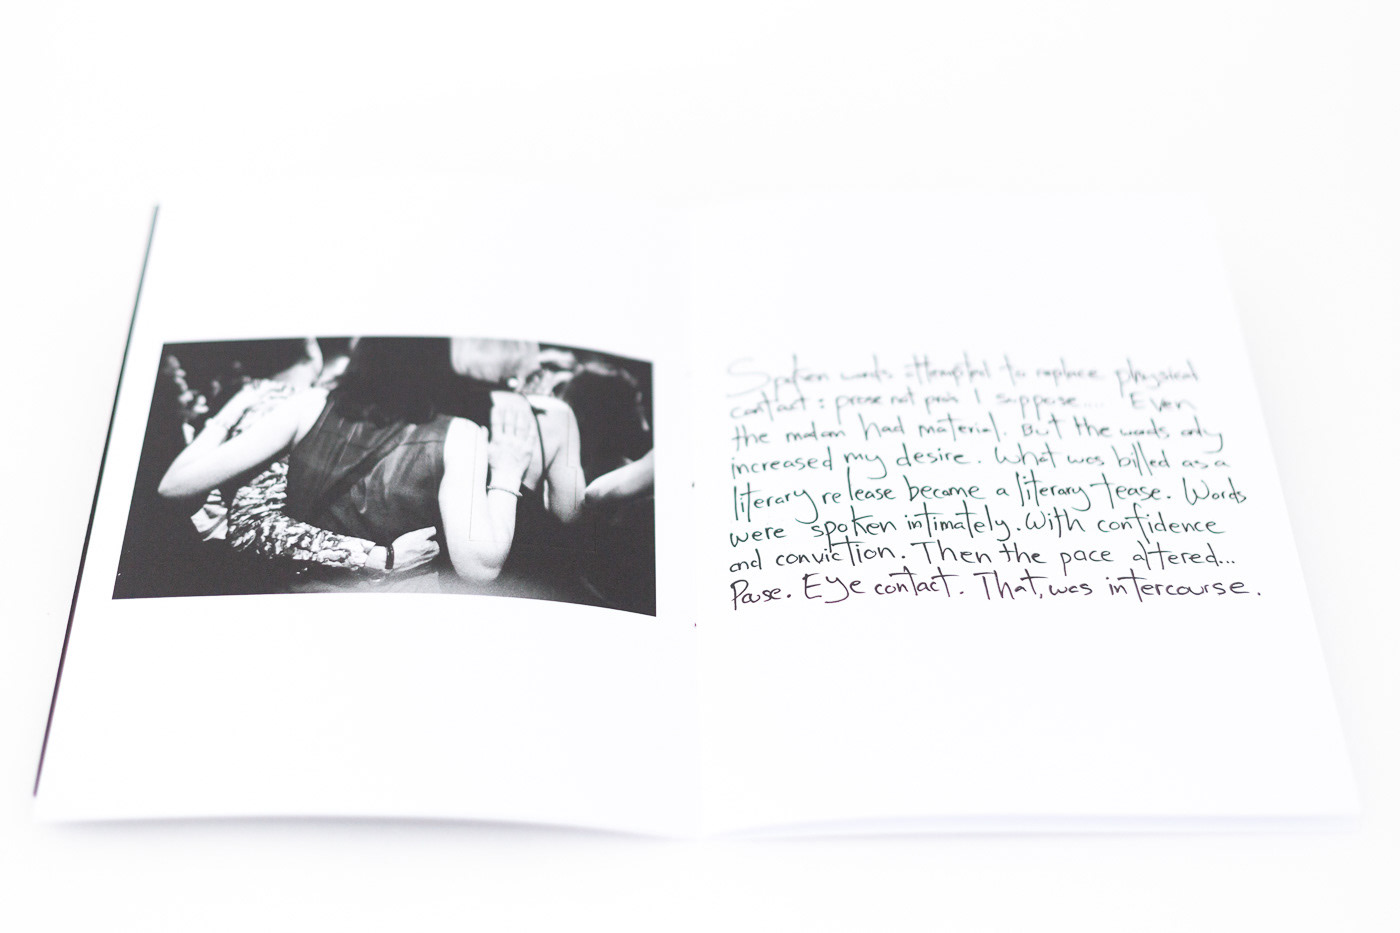 Spoken words attempted to replace physical
contact: prose not I suppose.... Even
the madam had material. But the words only
increased my desire. What was billed as a
literary release became a literary tease. Words
were spoken intimately. With confidence
and conviction. Then the pace altered...
Pause. Eye contact. That, was intercourse.